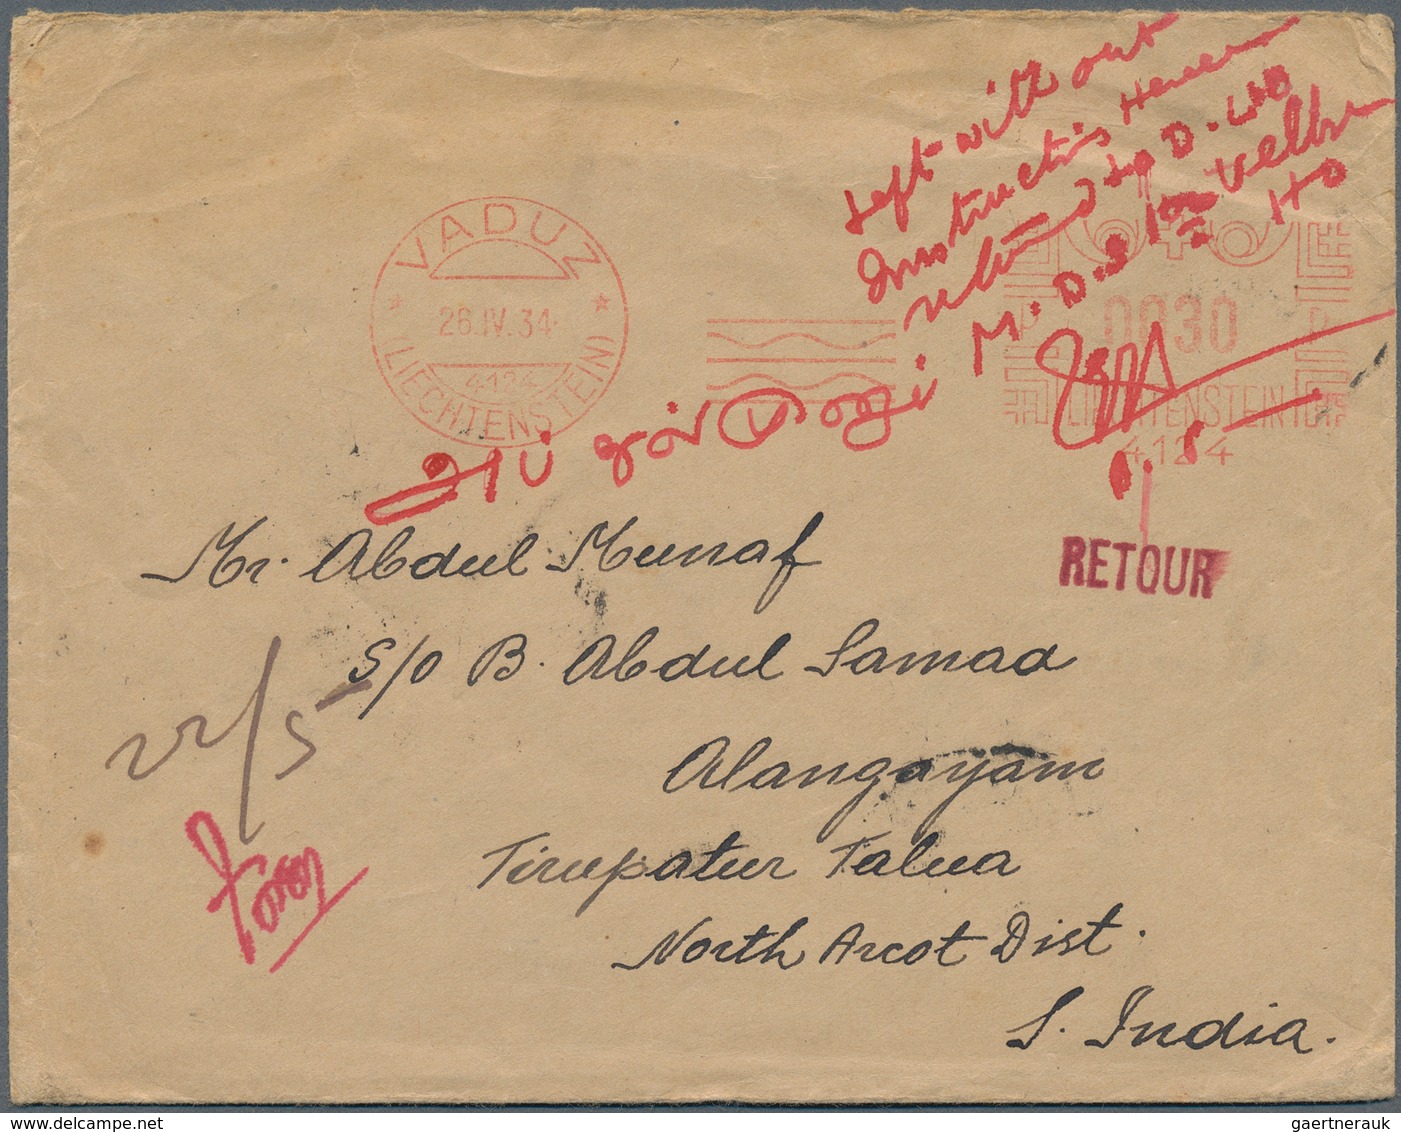 Left with out
Instructions Hence
returned to D.L.O
M.D.S Vellore
HO
VADUZ
26.IV.34
4124
(LIECHTENSTEIN)
0030
LIECHTENSTEIN
4124
RETOUR
Mr. Abdul Munaf
S/o B. Abdul Samad
Alangayam
Tirupatur Taluq
North Arcot Dist.
S. India.
22/5
gaertnerauk